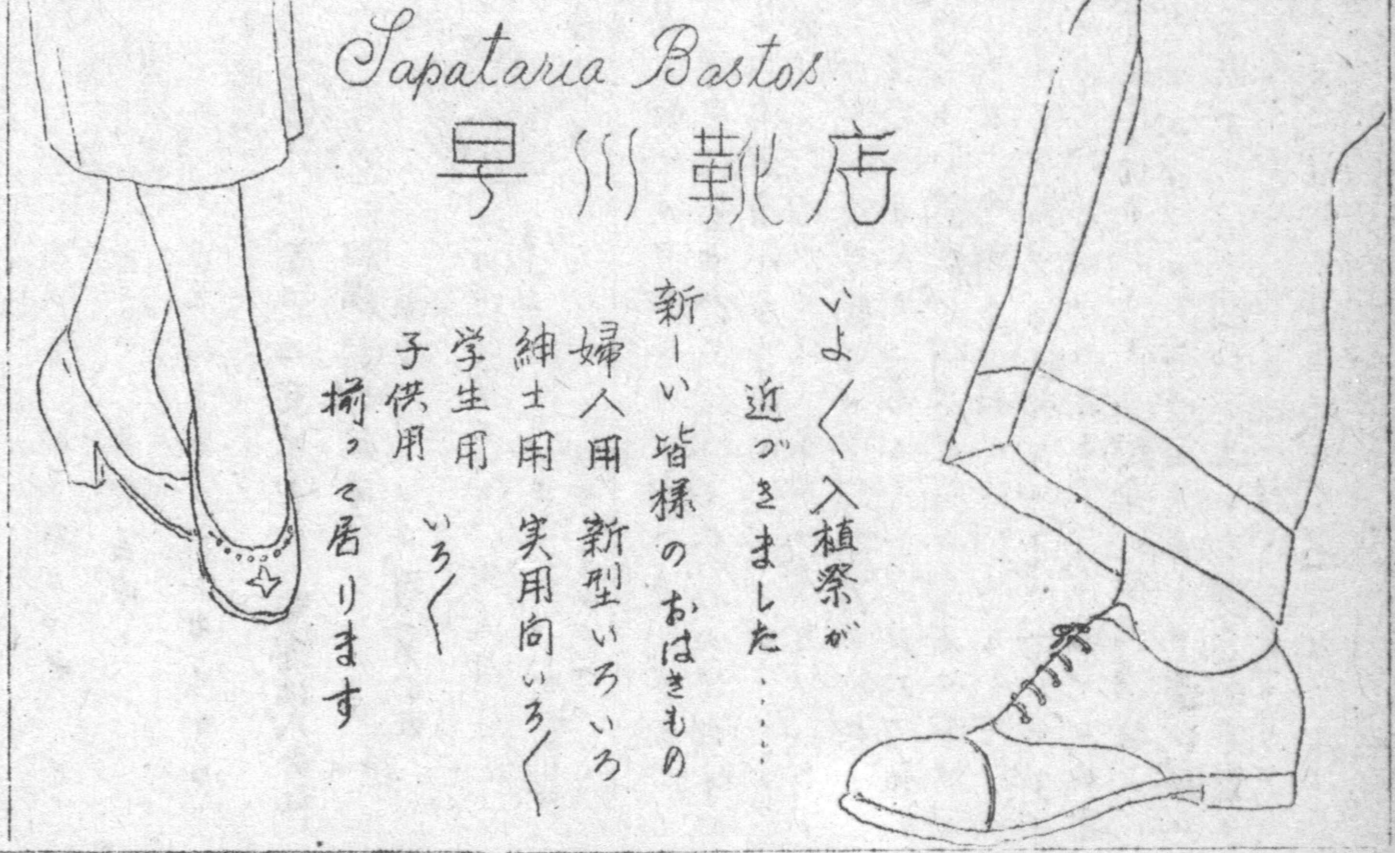 Sapataria Bastos
早川靴店
いよ〱入植祭が
近づきました.....
新しい皆様のおはきもの
婦人用 新型いろいろ
紳士用 実用向いろ〱
学生用
子供用 いろ〱
揃って居ります